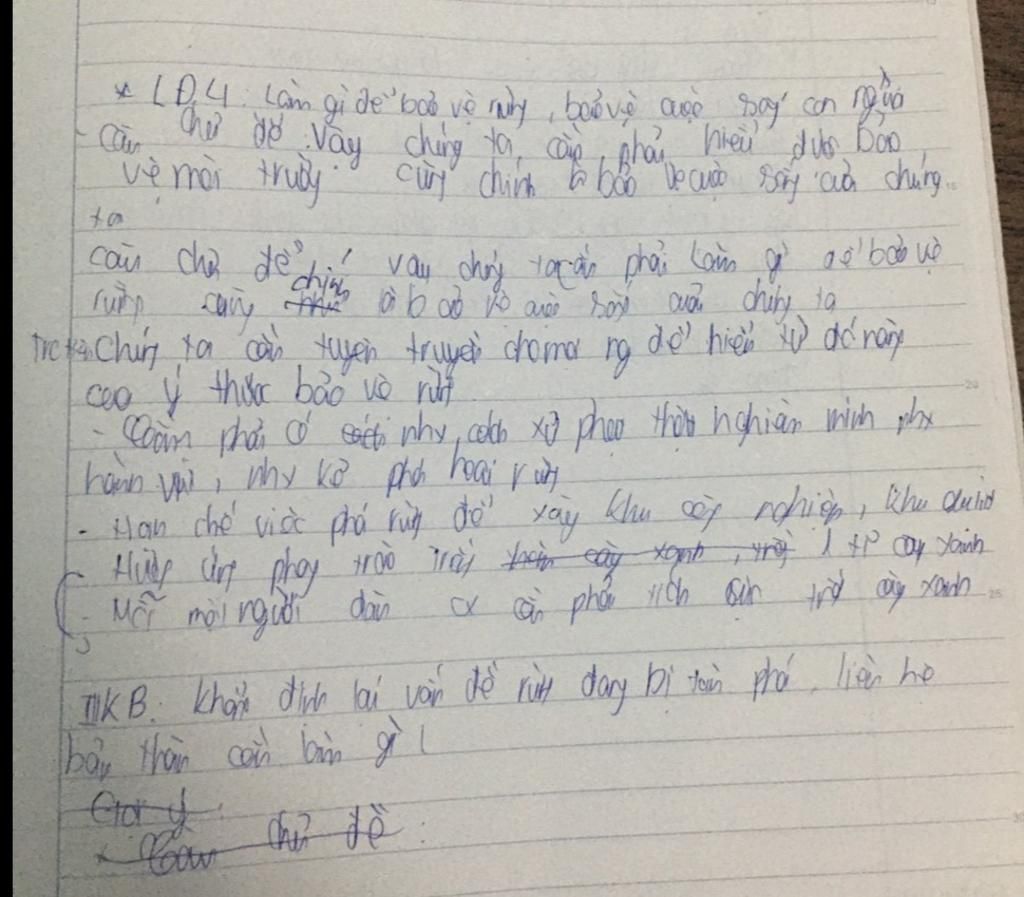 * LĐ4: Làm gì để bảo vệ rừng, bảo vệ cuộc sống con người
- Câu chủ đề. Vậy chúng ta cần phải hiểu được bảo
vệ môi trường cũng chính là bảo vệ cuộc sống của chúng
ta
Câu chủ đề: Vậy chúng ta cần phải làm gì để bảo vệ
rừng cũng chính là bảo vệ cuộc sống của chúng ta
Trc Chúng ta cần tuyên truyền cho mọi ng để hiểu từ đó nâng
cao ý thức bảo vệ rừng
- phải có cách xử phạt thật nghiêm minh
hành vi, kẻ phá hoại rừng
- Hạn chế việc phá rừng để xây khu công nghiệp, khu
- Hưởng ứng phong trào trồng cây xanh
- Mỗi một người dân cần phải tích cực trồng cây xanh
III KB. Khẳng định lại vấn đề rừng đang bị tàn phá, liên hệ
bản thân cần làm gì
Gợi ý
* Câu chủ đề.